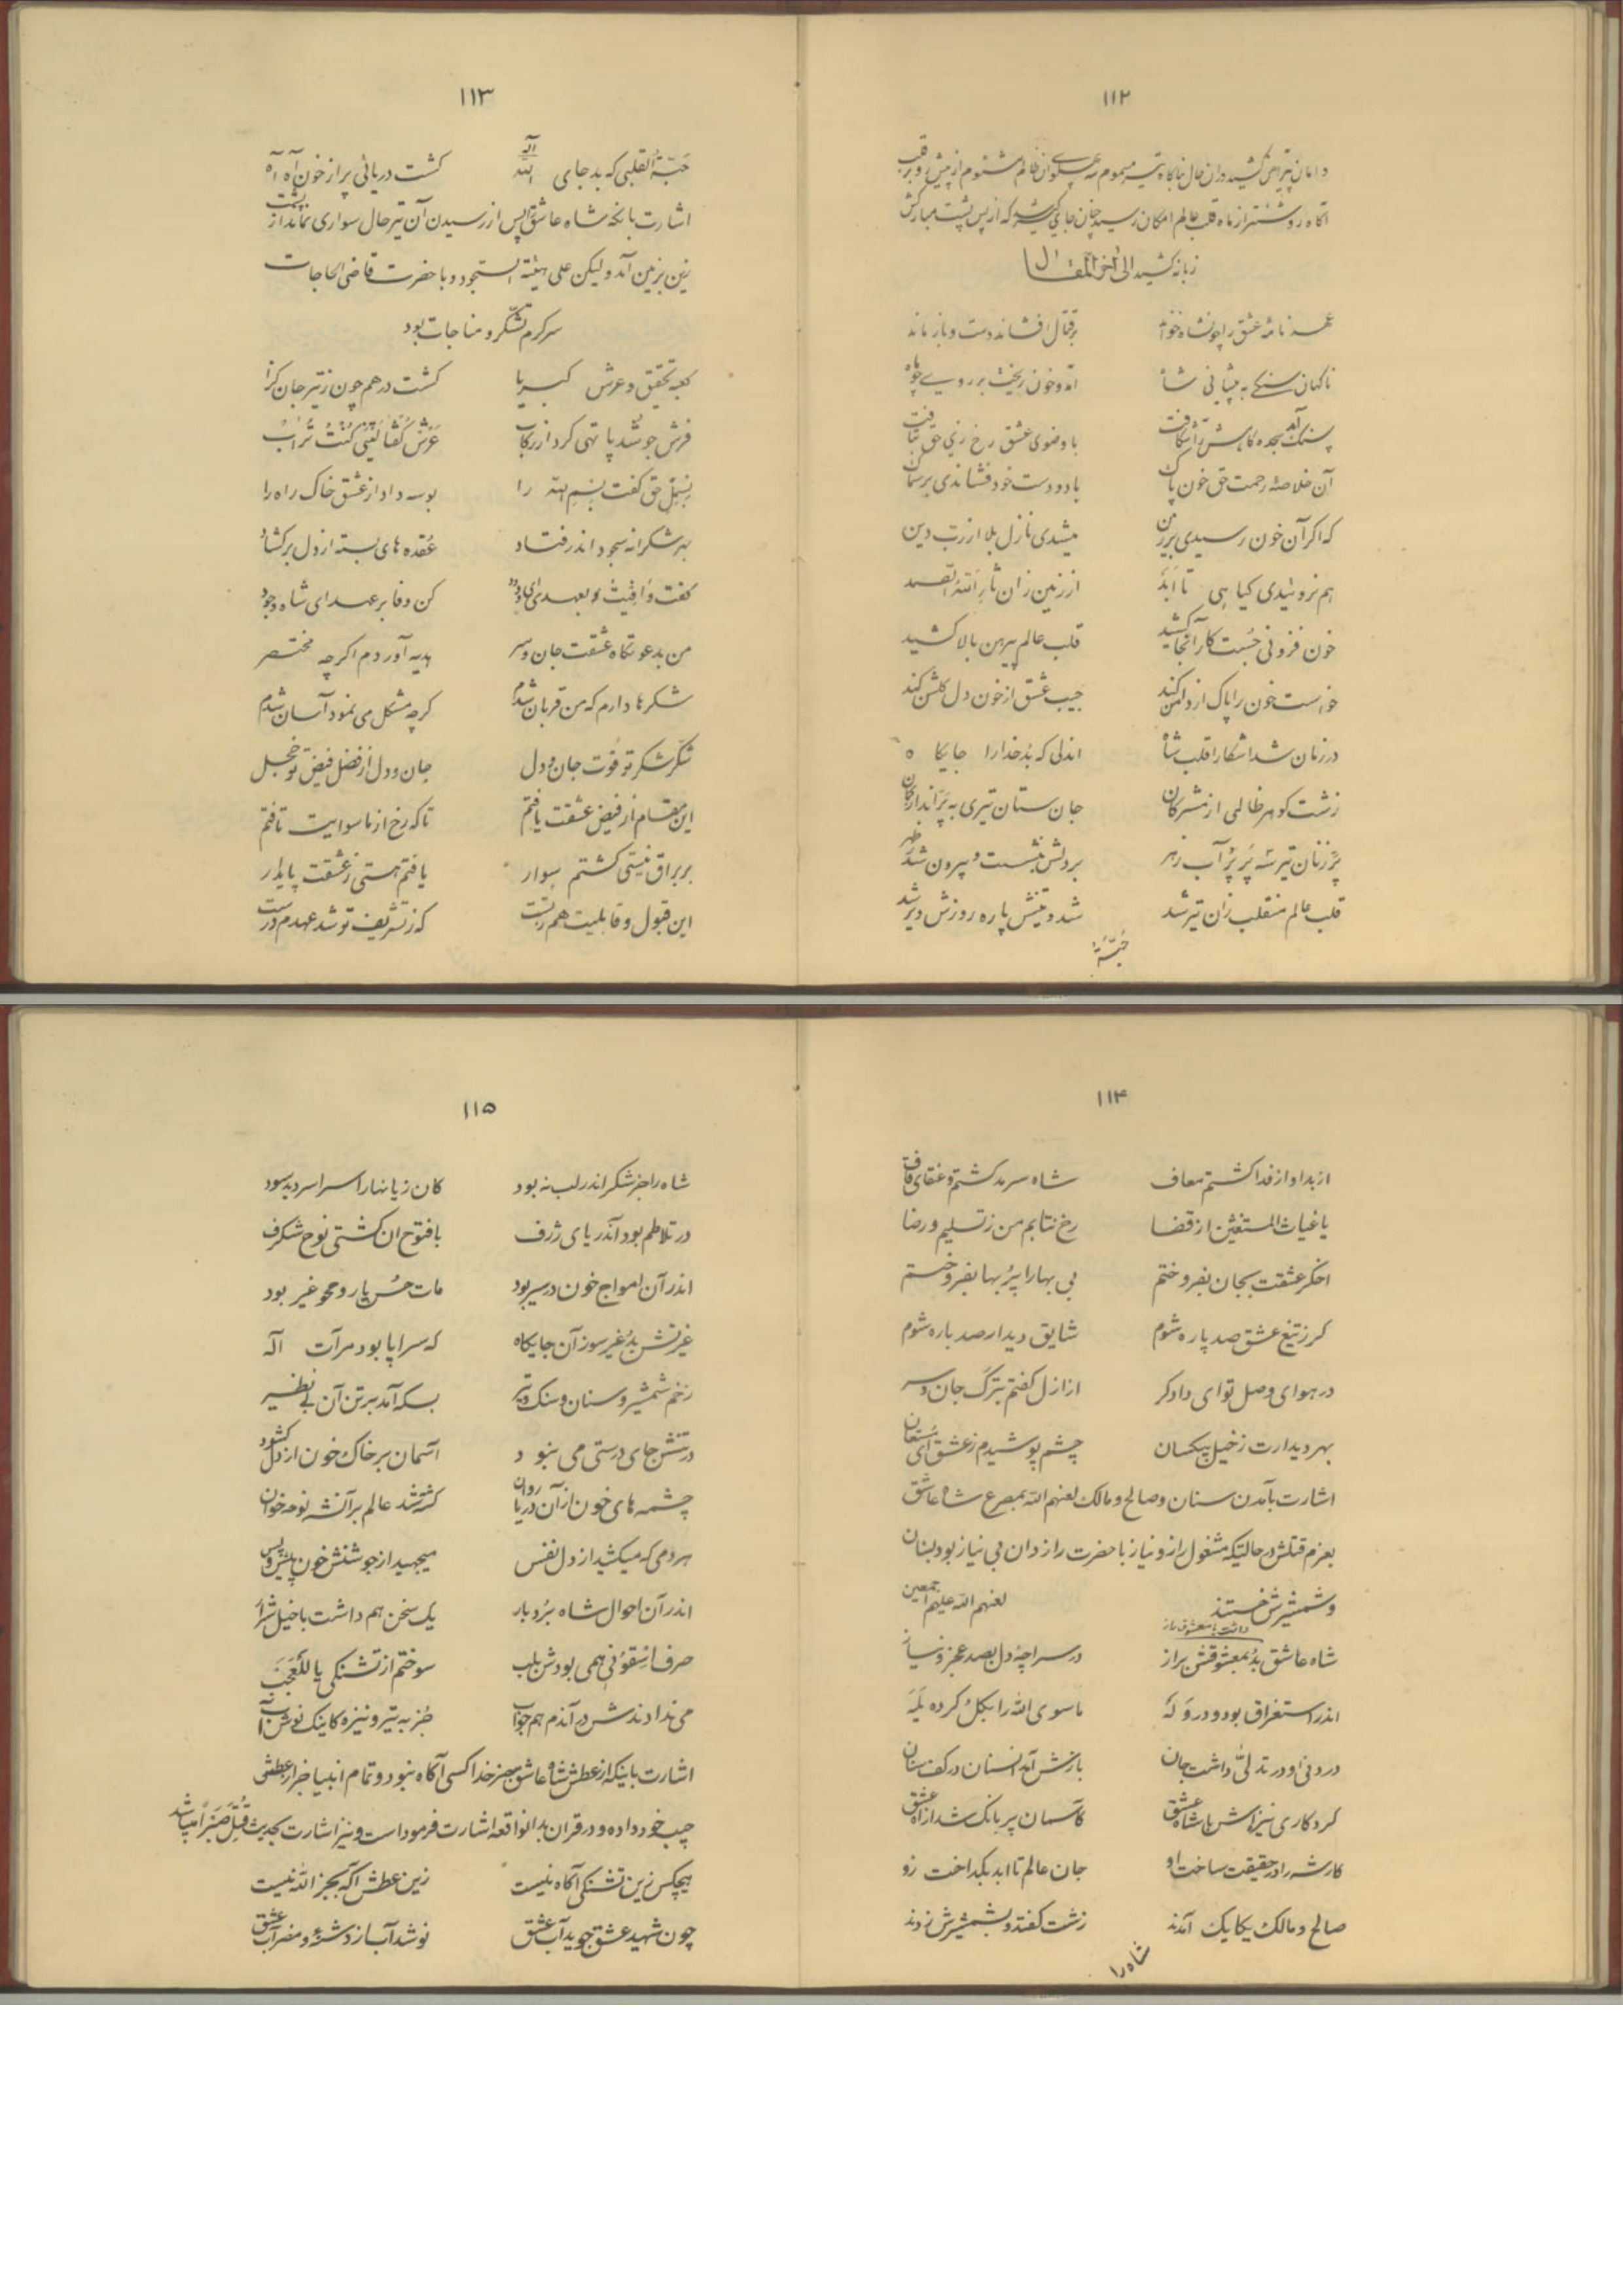 ۱۱۲
دامان پیراهن کشید در آن حال بناگاه تیر مسموم سه پهلو از ظالم میشوم از پیش رو بر قلب
آگاه روشنتر از ماه قلب عالم امکان رسید چنان جای گیر شد که از پس پشت مبارکش
زبانه کشید الی آخر المقال
عهد نامهٔ عشق را چونشاه خواند برقتال افشاند دست و باز ماند
ناکهان سنکے به پیشانی شاه آمد و خون ریخت بر روے چو ماه
سنک آمد سجده کاهش را شکافت با وضوی عشق رخ زی حق بتافت
آن خلاصهٔ رحمت حق خون پاک با دو دست خود فشاندی بر سماک
که اکر آن خون رسیدی بر زمین میشدی نازل بلا از رب دین
هم نروئیدی کیاهی تا ابد از زمین زان ثار الله الصمد
خون فزونی جست کار آنجا کشید قلب عالم پیرهن بالا کشید
خواست خون را پاک از دامن کند جیب عشق از خون دل کلشن کند
در زمان شد آشکارا قلب شاه اندلی که بُد خدا را جایکاه
زشت کوهر ظالمی از مشرکان جان ستان تیری به پرّاند از کمان
پرّ زنان تیر سه پر پُر آب زهر بر دلش بنشست و بیرون شد ز ظهر
قلب عالم منقلب زان تیر شد شد و تینش پاره روزش دیر شد
حَبّةُ
۱۱۳
حَبّةُ القلبی که بد جای اله الله کشت دریائی پر از خون آه آه
اشارت بانکه شاه عاشق پس از رسیدن آن تیر حال سواری نماند از پشت
زین بزمین آمد ولیکن علی هیئة السجود و با حضرت قاضی الحاجات
سرکرم تشکر و مناجات بود
کعبه تحقیق و عرش کبریا کشت درهم چون ز تیر جان کزا
فرش جو شد پا تهی کرد از رکاب عرش کفتا لیتنی کنت تراب
بسمل حق کفت بسم الله را بوسه داد از عشق خاک راه را
بهر شکرانه سجود اندر فتاد عُقده های بسته از دل بر کشاد
کفت وافیت لعهدی ای ودود کن وفا بر عهد ای شاه وجود
من بدعوتکاه عشقت جان و سر هدیه آوردم اکر چه مختصر
شکرها دارم که من قربان شدم کر چه مشکل می نمود آسان شدم
شکّر شکر تو قوت جان و دل جان و دل از فضل فیض تو خجل
این مقام از فیض عشقت یافتم تا که رخ از ماسوایت تافتم
بر براق نیستی کشتم سوار یافتم هستی ز عشقت پایدار
این قبول و قابلیت هم ز تست که ز تشریف تو شد عهدم درست
۱۱۴
از بدا و از فدا کشتم معاف شاه سرمد کشتم و عنقای قاف
یا غیاث المستغیثین از قضا رخ نتابم من ز تسلیم و رضا
اخکر عشقت بجان بفروختم بی بها را پُر بها بفروختم
کر ز تیغ عشق صد پاره شوم شایق دیدار صد باره شوم
در هوای وصل تو ای دادکر از ازل کفتم بترک جان و سر
بهر دیدارت ز خیل بیکسان چشم پوشیدم ز عشق ای مستعان
اشارت بآمدن سنان و صالح و مالک لعنهم الله بمصرع شاه عاشق
بعزم قتلش در حالتیکه مشغول راز و نیاز با حضرت رازدان بی نیاز بود بسنان
و شمشیرش خستند لعنهم الله علیهم اجمعین
داشت با معشوق راز
شاه عاشق بُد بمعشوقش براز در سراچهٔ دل بصد عجز و نیاز
اندر استغراق بود و در وَلَه ماسوی الله را بکل کرده یله
در دنی او در تدلّی داشت جان بازش آمد آنسنان در کف سنان
کرد کاری نیزه اش با شاه عشق کآسمان پر بانک شد از آه عشق
کار شه را در حقیقت ساخت او جان عالم تا ابد بکداخت زو
صالح و مالک یکایک آمدند زشت کفتند و بشمشیرش زدند
شاه را
۱۱۵
شاه را جز شکر اندر لب نه بود کان زیانها را سراسر دید سود
در تلاطم بود آندریای ژرف با فتوح آن کشتی نوح شکرف
اندر آن امواج خون در سیر بود مات حسن یار و محو غیر بود
غیرتش بد غیر سوز آن جایکاه که سراپا بود مرآت اله
زخم شمشیر و سنان و سنک و تیر بسکه آمد بر تن آن بے نظیر
در تنش جای درستی می نبود آسمان بر خاک خون از دل کشود
چشمه های خون از آن دریا روان کشته شد عالم بر آنشه نوحه خوان
هر دمی که میکشید از دل نفس میجهید از جوشنش خون پیش و پس
اندر آن احوال شاه بُردبار یک سخن هم داشت با خیل شرار
حرف اسقونی همی بودش بلب سوختم از تشنکی یا للعجب
می ندادندش در آندم هم جواب جز به تیر و نیزه کاینک نوش آب
اشارت باینکه از عطش شاه عاشق بجز خدا کسی آکاه نبود و تمام انبیا خبر از عطش
حبیب خود داده و در قران بد انواقعه اشارت فرموداست و نیز اشارت بحدیث قُتِلَ صَبراً میباشد
هیچکس زین تشنکی آکاه نیست زین عطش آکه بجز الله نیست
چون شهید عشق جوید آب عشق نوشد آب از دشنهٔ و مضراب عشق